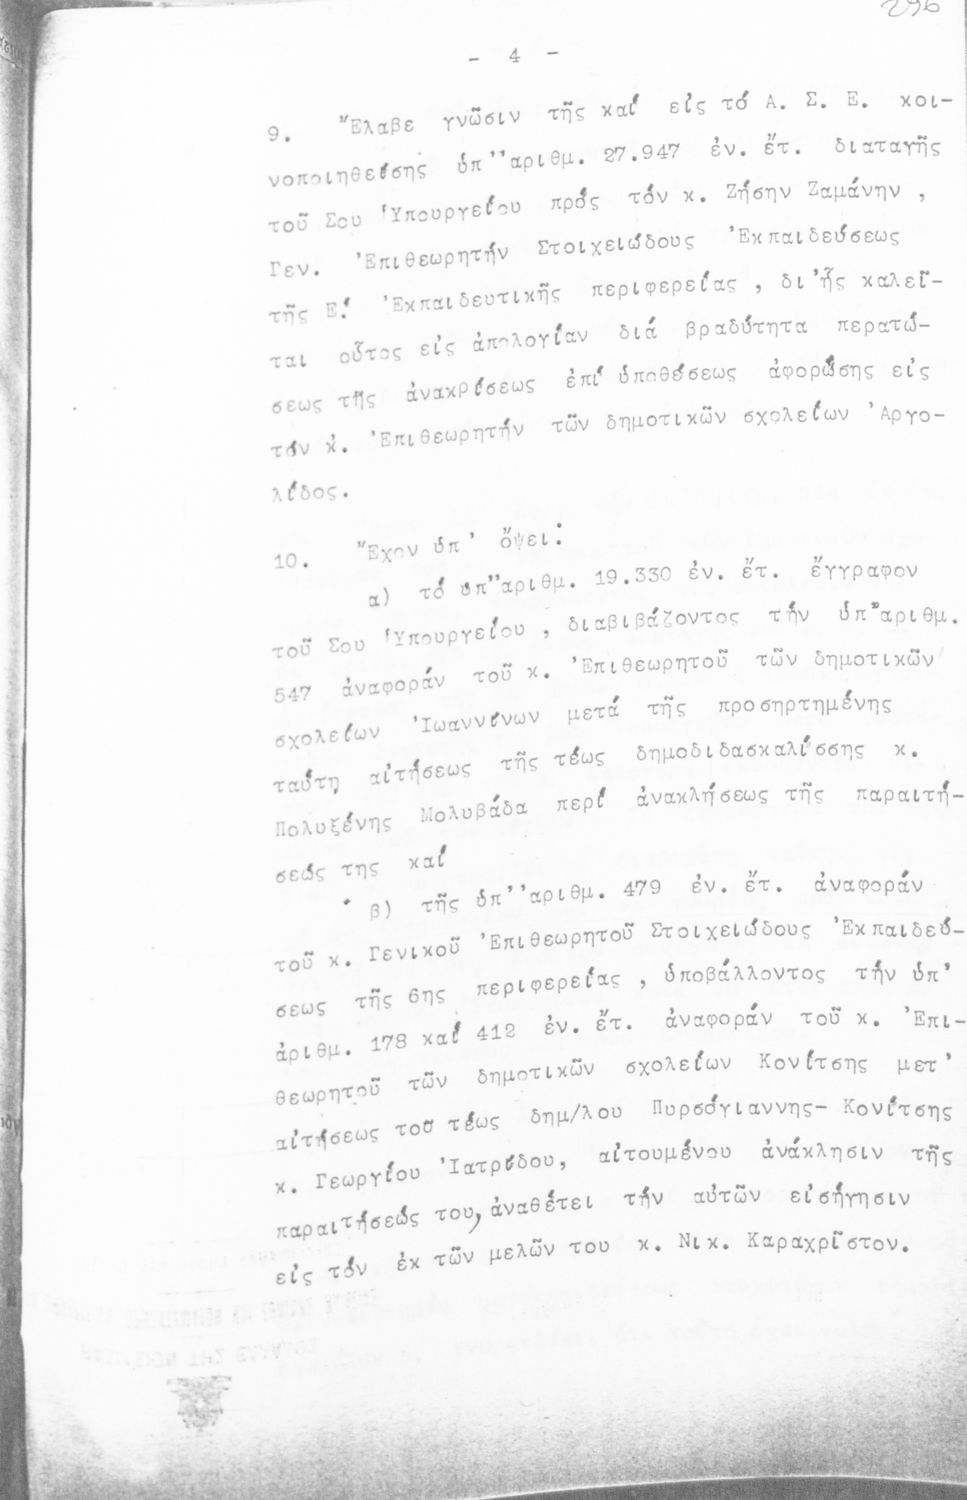 296
- 4 -
9. Ἔλαβε γνῶσιν τῆς καί εἰς τό Α. Σ. Ε. κοι-
νοποιηθείσης ὑπ' ἀριθμ. 27.947 ἐν. ἔτ. διαταγῆς
τοῦ Σου Ὑπουργείου πρός τόν κ. Ζήσην Ζαμάνην ,
Γεν. Ἐπιθεωρητήν Στοιχειώδους Ἐκπαιδεύσεως
τῆς Ε! Ἐκπαιδευτικῆς περιφερείας , δι' ἧς καλεῖ-
ται οὗτος εἰς ἀπολογίαν διά βραδύτητα περατώ-
σεως τῆς ἀνακρίσεως ἐπί ὑποθέσεως ἀφορώσης εἰς
τόν κ. Ἐπιθεωρητήν τῶν δημοτικῶν σχολείων Ἀργο-
λίδος.
10. Ἔχον ὑπ' ὄψει:
α) τό ὑπ' ἀριθμ. 19.330 ἐν. ἔτ. ἔγγραφον
τοῦ Σου Ὑπουργείου , διαβιβάζοντος τήν ὑπ' ἀριθμ.
547 ἀναφοράν τοῦ κ. Ἐπιθεωρητοῦ τῶν δημοτικῶν
σχολείων Ἰωαννίνων μετά τῆς προσηρτημένης
ταύτῃ αἰτήσεως τῆς τέως δημοδιδασκαλίσσης κ.
Πολυξένης Μολυβάδα περί ἀνακλήσεως τῆς παραιτή-
σεώς της καί
β) τῆς ὑπ' ἀριθμ. 479 ἐν. ἔτ. ἀναφοράν
τοῦ κ. Γενικοῦ Ἐπιθεωρητοῦ Στοιχειώδους Ἐκπαιδεύ-
σεως τῆς 6ης περιφερείας , ὑποβάλλοντος τήν ὑπ'
ἀριθμ. 178 καί 412 ἐν. ἔτ. ἀναφοράν τοῦ κ. Ἐπι-
θεωρητοῦ τῶν δημοτικῶν σχολείων Κονίτσης μετ'
αἰτήσεως τοῦ τέως δημ/λου Πυρσόγιαννης- Κονίτσης
κ. Γεωργίου Ἰατρίδου, αἰτουμένου ἀνάκλησιν τῆς
παραιτήσεώς του, ἀναθέτει τήν αὐτῶν εἰσήγησιν
εἰς τόν ἐκ τῶν μελῶν του κ. Νικ. Καραχρῖστον.